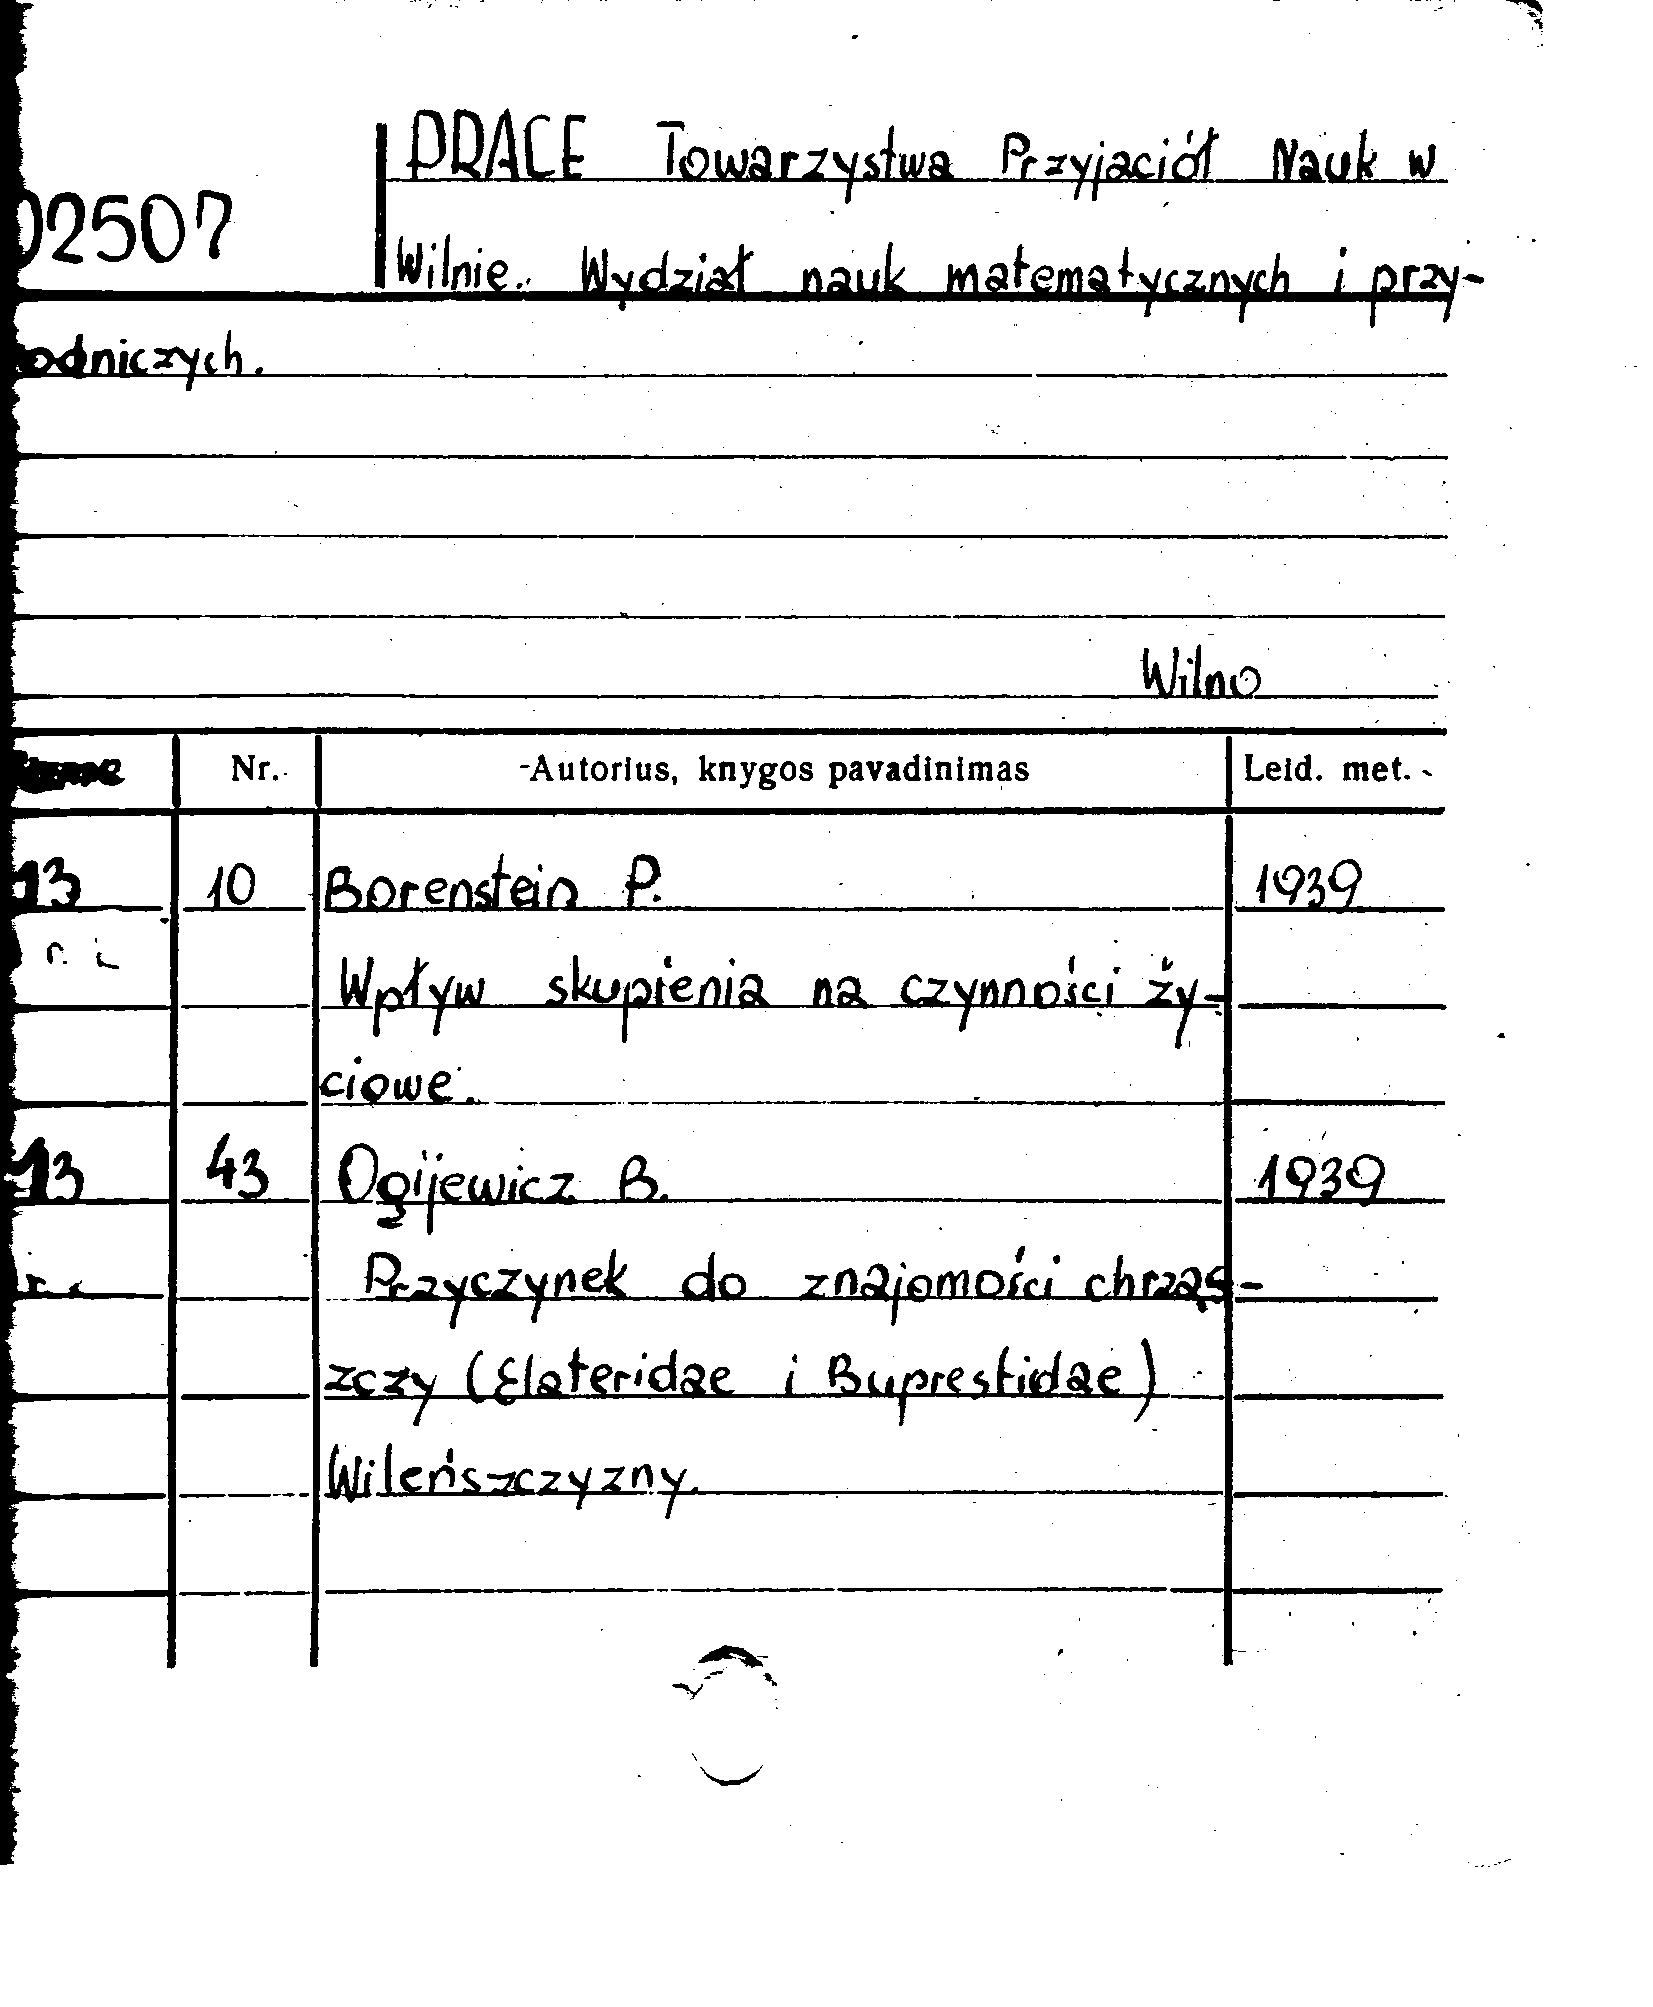 PRACE Towarzystwa Przyjaciół Nauk w
02507
Wilnie. Wydział nauk matematycznych i przy-
odniczych.
Wilno
Nr. Autorius, knygos pavadinimas Leid. met.
13 10 Borenstein P. 1939
Wpływ skupienia na czynności ży-
ciowe.
13 43 Ogijewicz B. 1939
Przyczynek do znajomości chrząs-
zczy (Elateridae i Buprestidae)
Wileńszczyzny.